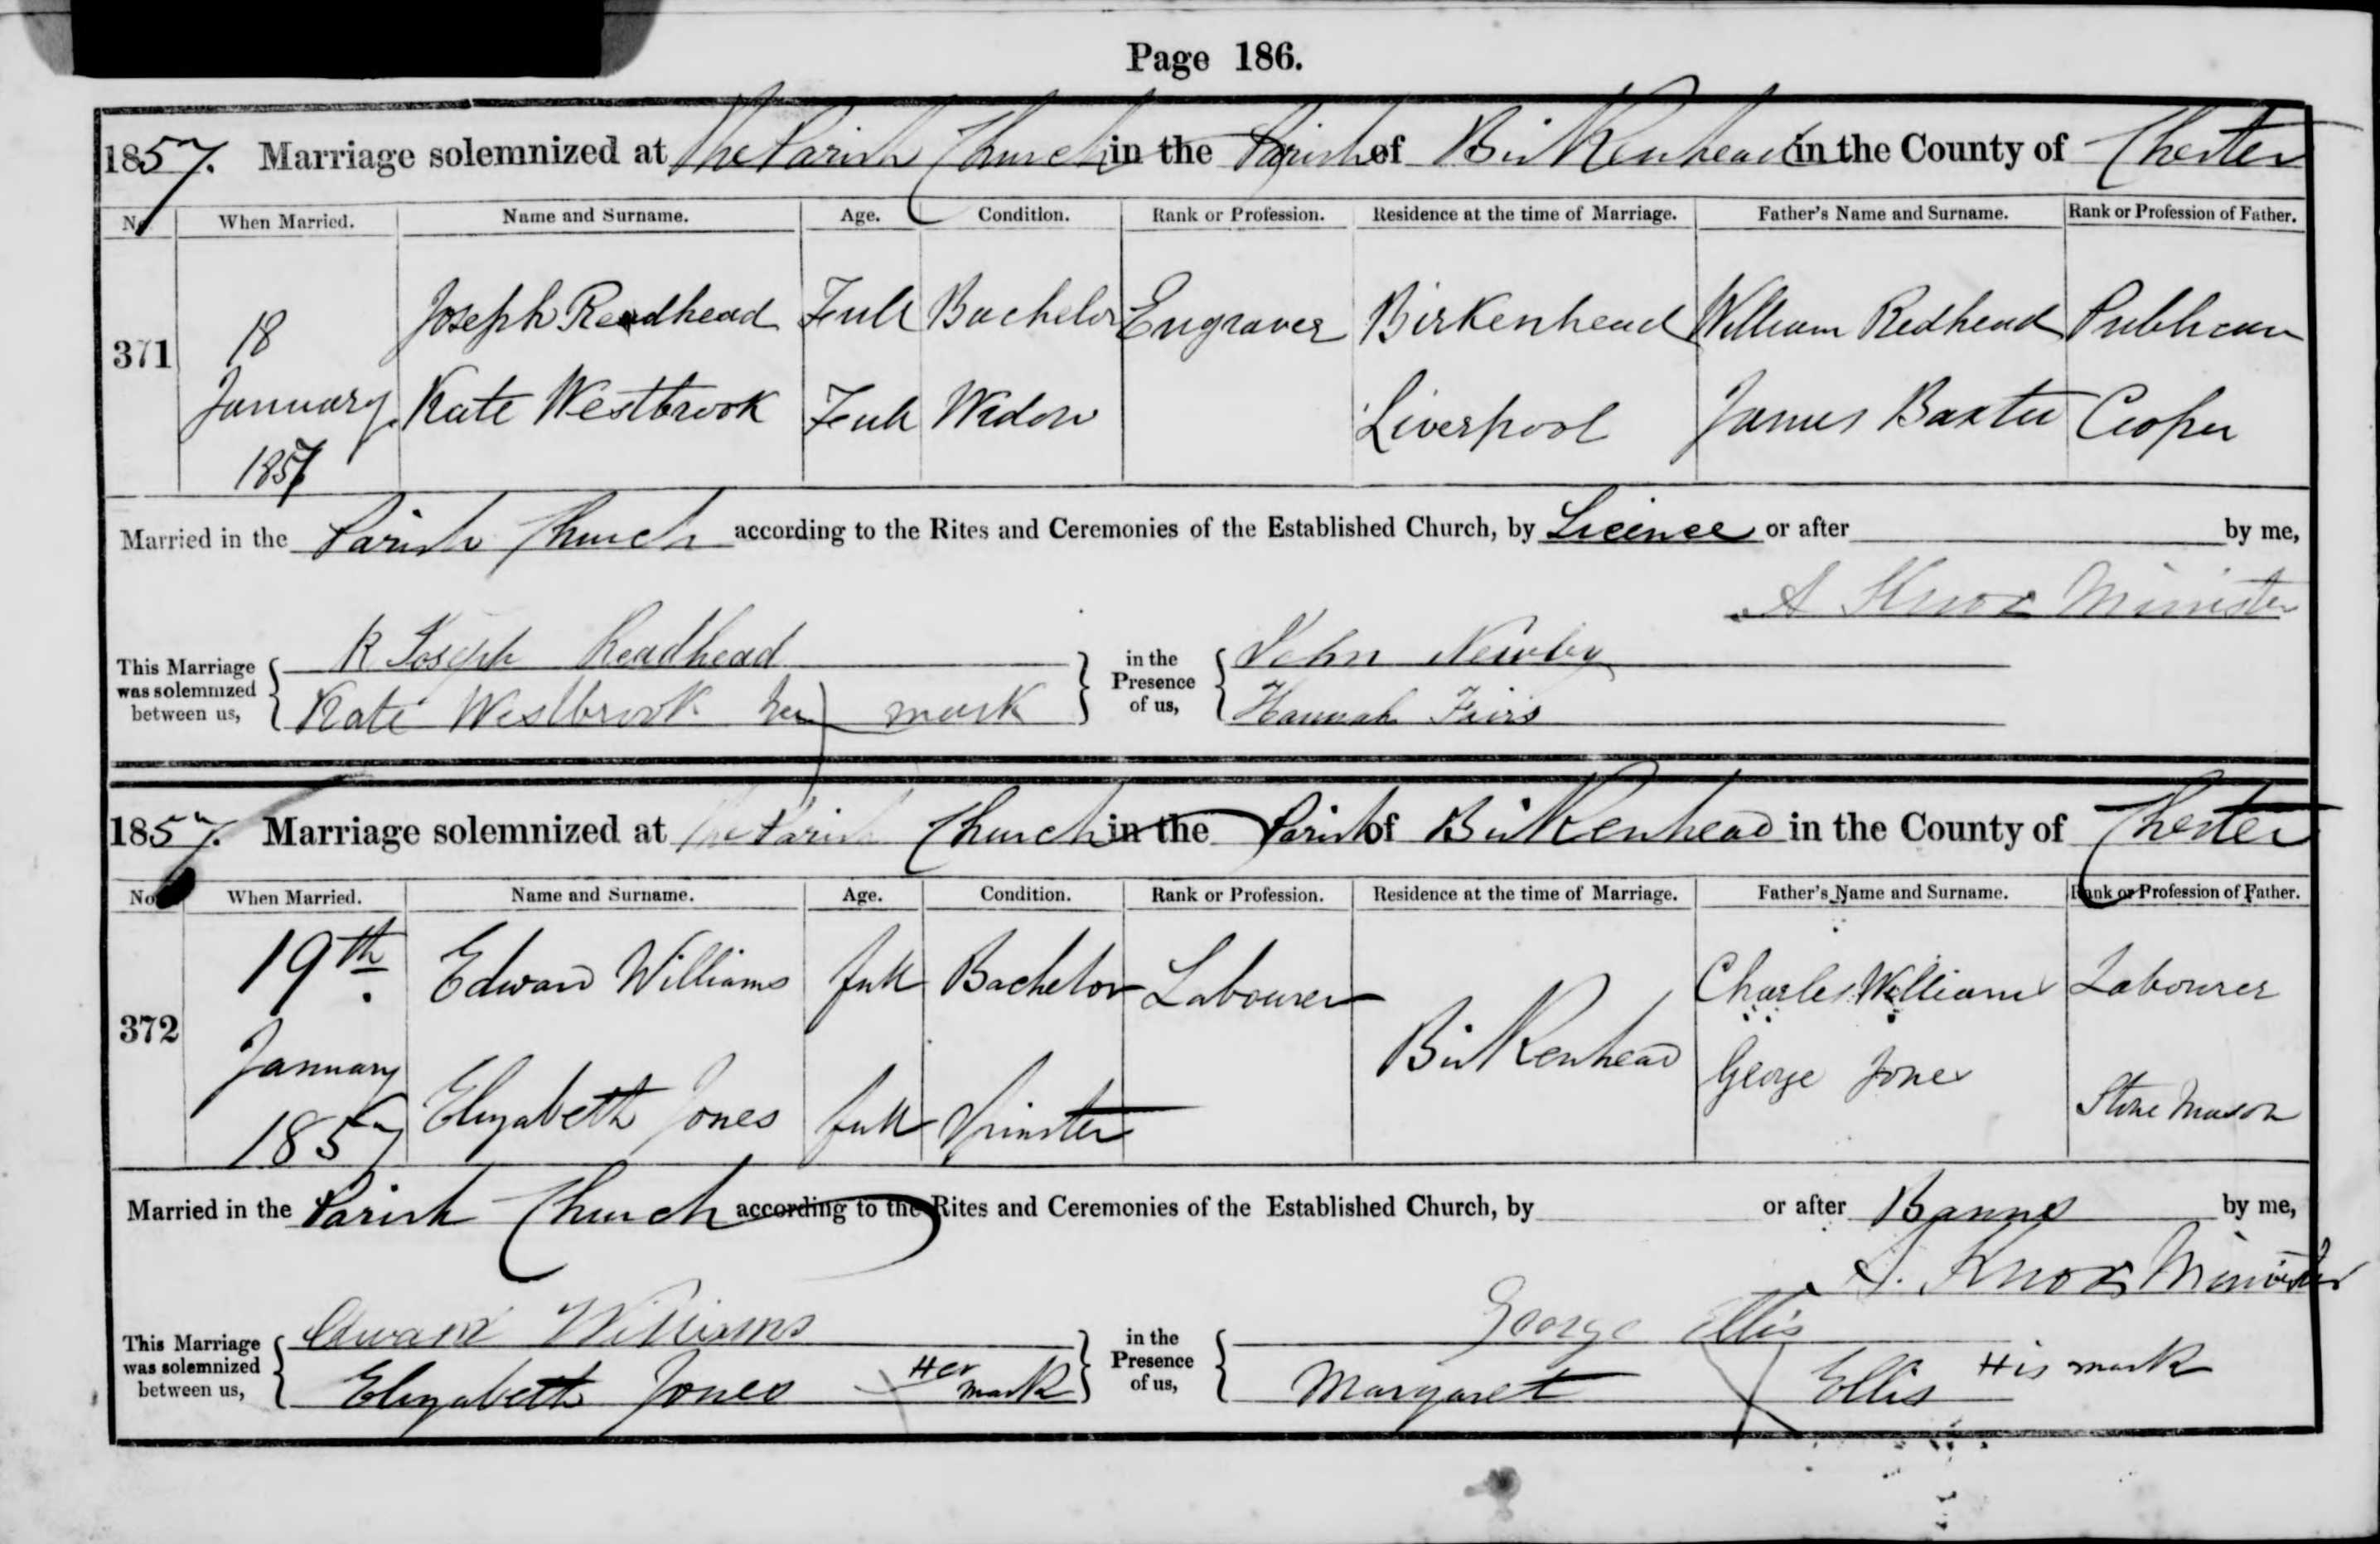 Page 186.
1857. Marriage solemnized at The Parish Church in the Parish of Birkenhead in the County of Chester
No. When Married. Name and Surname. Age. Condition. Rank or Profession. Residence at the time of Marriage. Father's Name and Surname. Rank or Profession of Father.
371 18 January 1857 Joseph Readhead Full Bachelor Engraver Birkenhead William Redhead Publican
Kate Westbrook Full Widow Liverpool James Baxter Cooper
Married in the Parish Church according to the Rites and Ceremonies of the Established Church, by Licence or after by me,
A Knox Minister
This Marriage was solemnized between us, R Joseph Readhead in the Presence of us, John Newby
Kate Westbrook her mark Hannah
1857. Marriage solemnized at The Parish Church in the Parish of Birkenhead in the County of Chester
No. When Married. Name and Surname. Age. Condition. Rank or Profession. Residence at the time of Marriage. Father's Name and Surname. Rank or Profession of Father.
372 19th January 1857 Edward Williams full Bachelor Labourer Birkenhead Charles Williams Labourer
Elizabeth Jones full Spinster George Jones Stone Mason
Married in the Parish Church according to the Rites and Ceremonies of the Established Church, by or after Banns by me,
A. Knox Minister
This Marriage was solemnized between us, Edward Williams in the Presence of us, George Ellis
Elizabeth Jones Her mark Margaret Ellis His mark